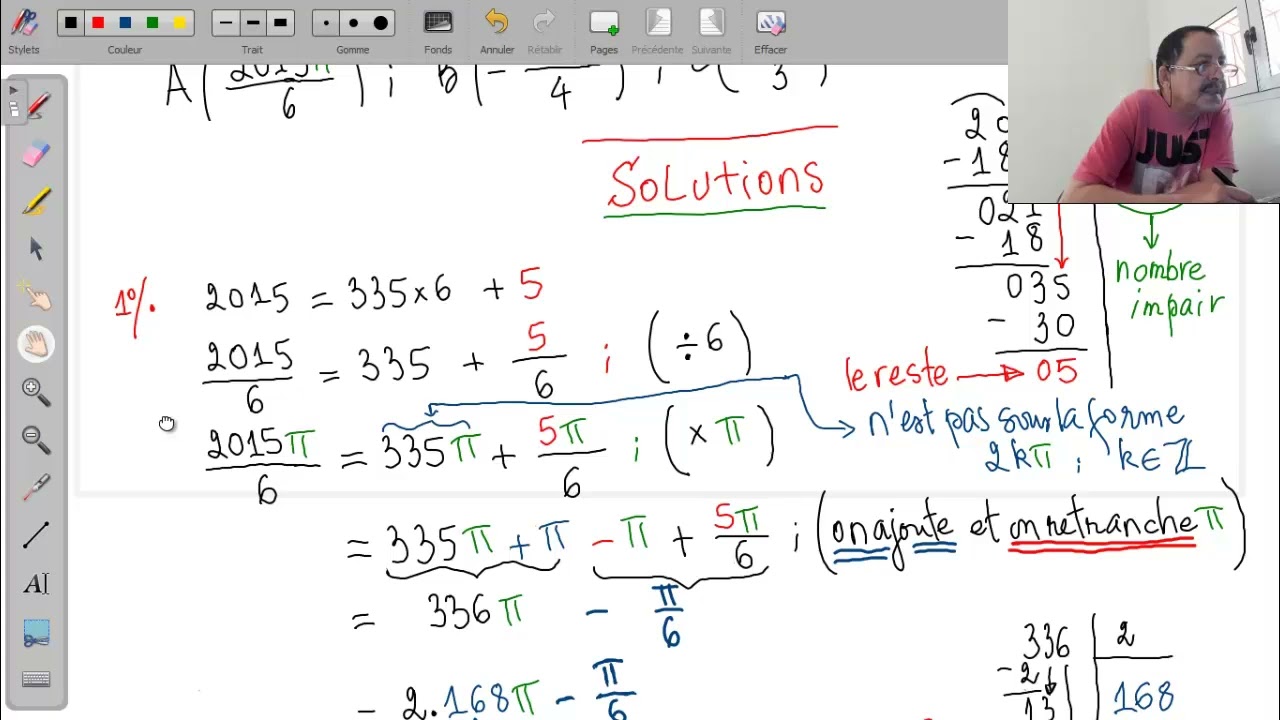 Stylets Couleur Trait Gomme Fonds Annuler Rétablir Pages Précédente Suivante Effacer
A(2015π/6) ; B(- /4) ; 3)
Solutions
JUST
1°/. 2015 = 335×6 + 5
2015/6 = 335 + 5/6 ; (÷6)
2015π/6 = 335π + 5π/6 ; (×π)
n'est pas sous la forme
2kπ ; k∈ℤ
= 335π + π - π + 5π/6 ; (on ajoute et on retranche π)
= 336π - π/6
= 2.168π - π/6
20
-18
021
- 18
035
- 30
le reste → 05
nombre
impair
336 | 2
-2
13 | 168
AI